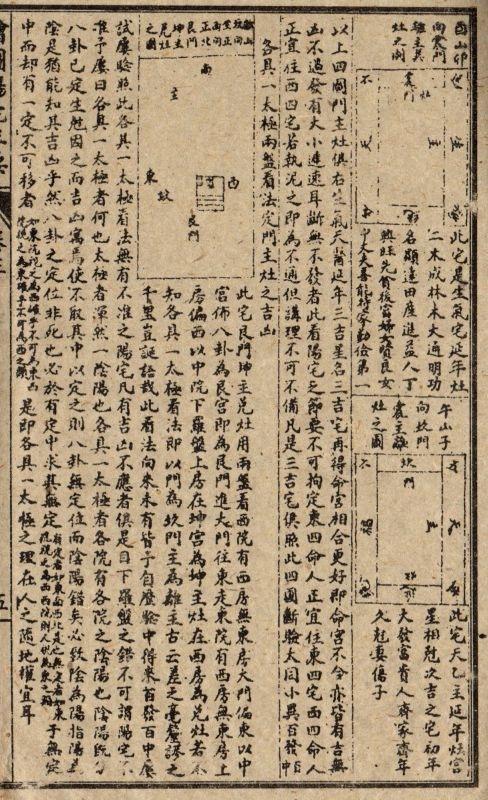 酉山卯
向震門
離主巽
灶之圖
震門
灶
主
此宅是生氣宅延年灶
二木成林木火通明功
名顯達田產進益人丁
興旺先貧後富婦女賢良女
中丈夫善能持家勤儉第一
午山子
向坎門
震主離
灶之圖
坎門
主
此宅天乙主延年灶宮
星相尅次吉之宅初年
大發富貴人齊家齊年
久尅妻傷子
以上四圖門主灶俱在生氣天醫延年三吉星名三吉宅再得命宮相合更好即命宮不合亦皆有吉無
凶不過發有大小遲速耳斷無不發者此看陽宅之節要不可拘定東四命人正宜住東四宅西四命人
正宜住西四宅若執泥之即為不通但講理不可不備凡是三吉宅俱照此四圖斷驗大同小異百發百中
各具一太極兩盤看法定門主灶之吉凶
坤主
兌灶
之圖
南
主
東
西
艮門
此宅艮門坤主兌灶用兩盤看西院有西房無東房大門偏東以中
宮佈八卦為艮宮即為艮門進大門往東走東院有西房無東房上
房偏西以中院下羅盤上房在坤宮為坤主灶在西房為兌灶若不
知各具一太極看法即以門為坎門主為離主古云差之毫釐謬之
千里豈誕語哉此看法向來未有皆予自歷驗中得來百發百中屢
試屢驗照此各具一太極看法無有不准之陽宅凡有吉凶不應者俱是目下羅盤之錯不可謂陽宅不
准予屢曰各具一太極者何也太極者渾然一陰陽也各具一太極者各院有各院之陰陽也陰陽既分
八卦已定生尅因之而吉凶寓焉使不取其中以定之則八卦無定位而陰陽錯矣必致陰為陽指陽為
陰是猶能知其吉凶乎然八卦之定位非死也必於有定中求其無定
中而却有一定不可移者
是即各具一太極之理在人之隨地權宜耳